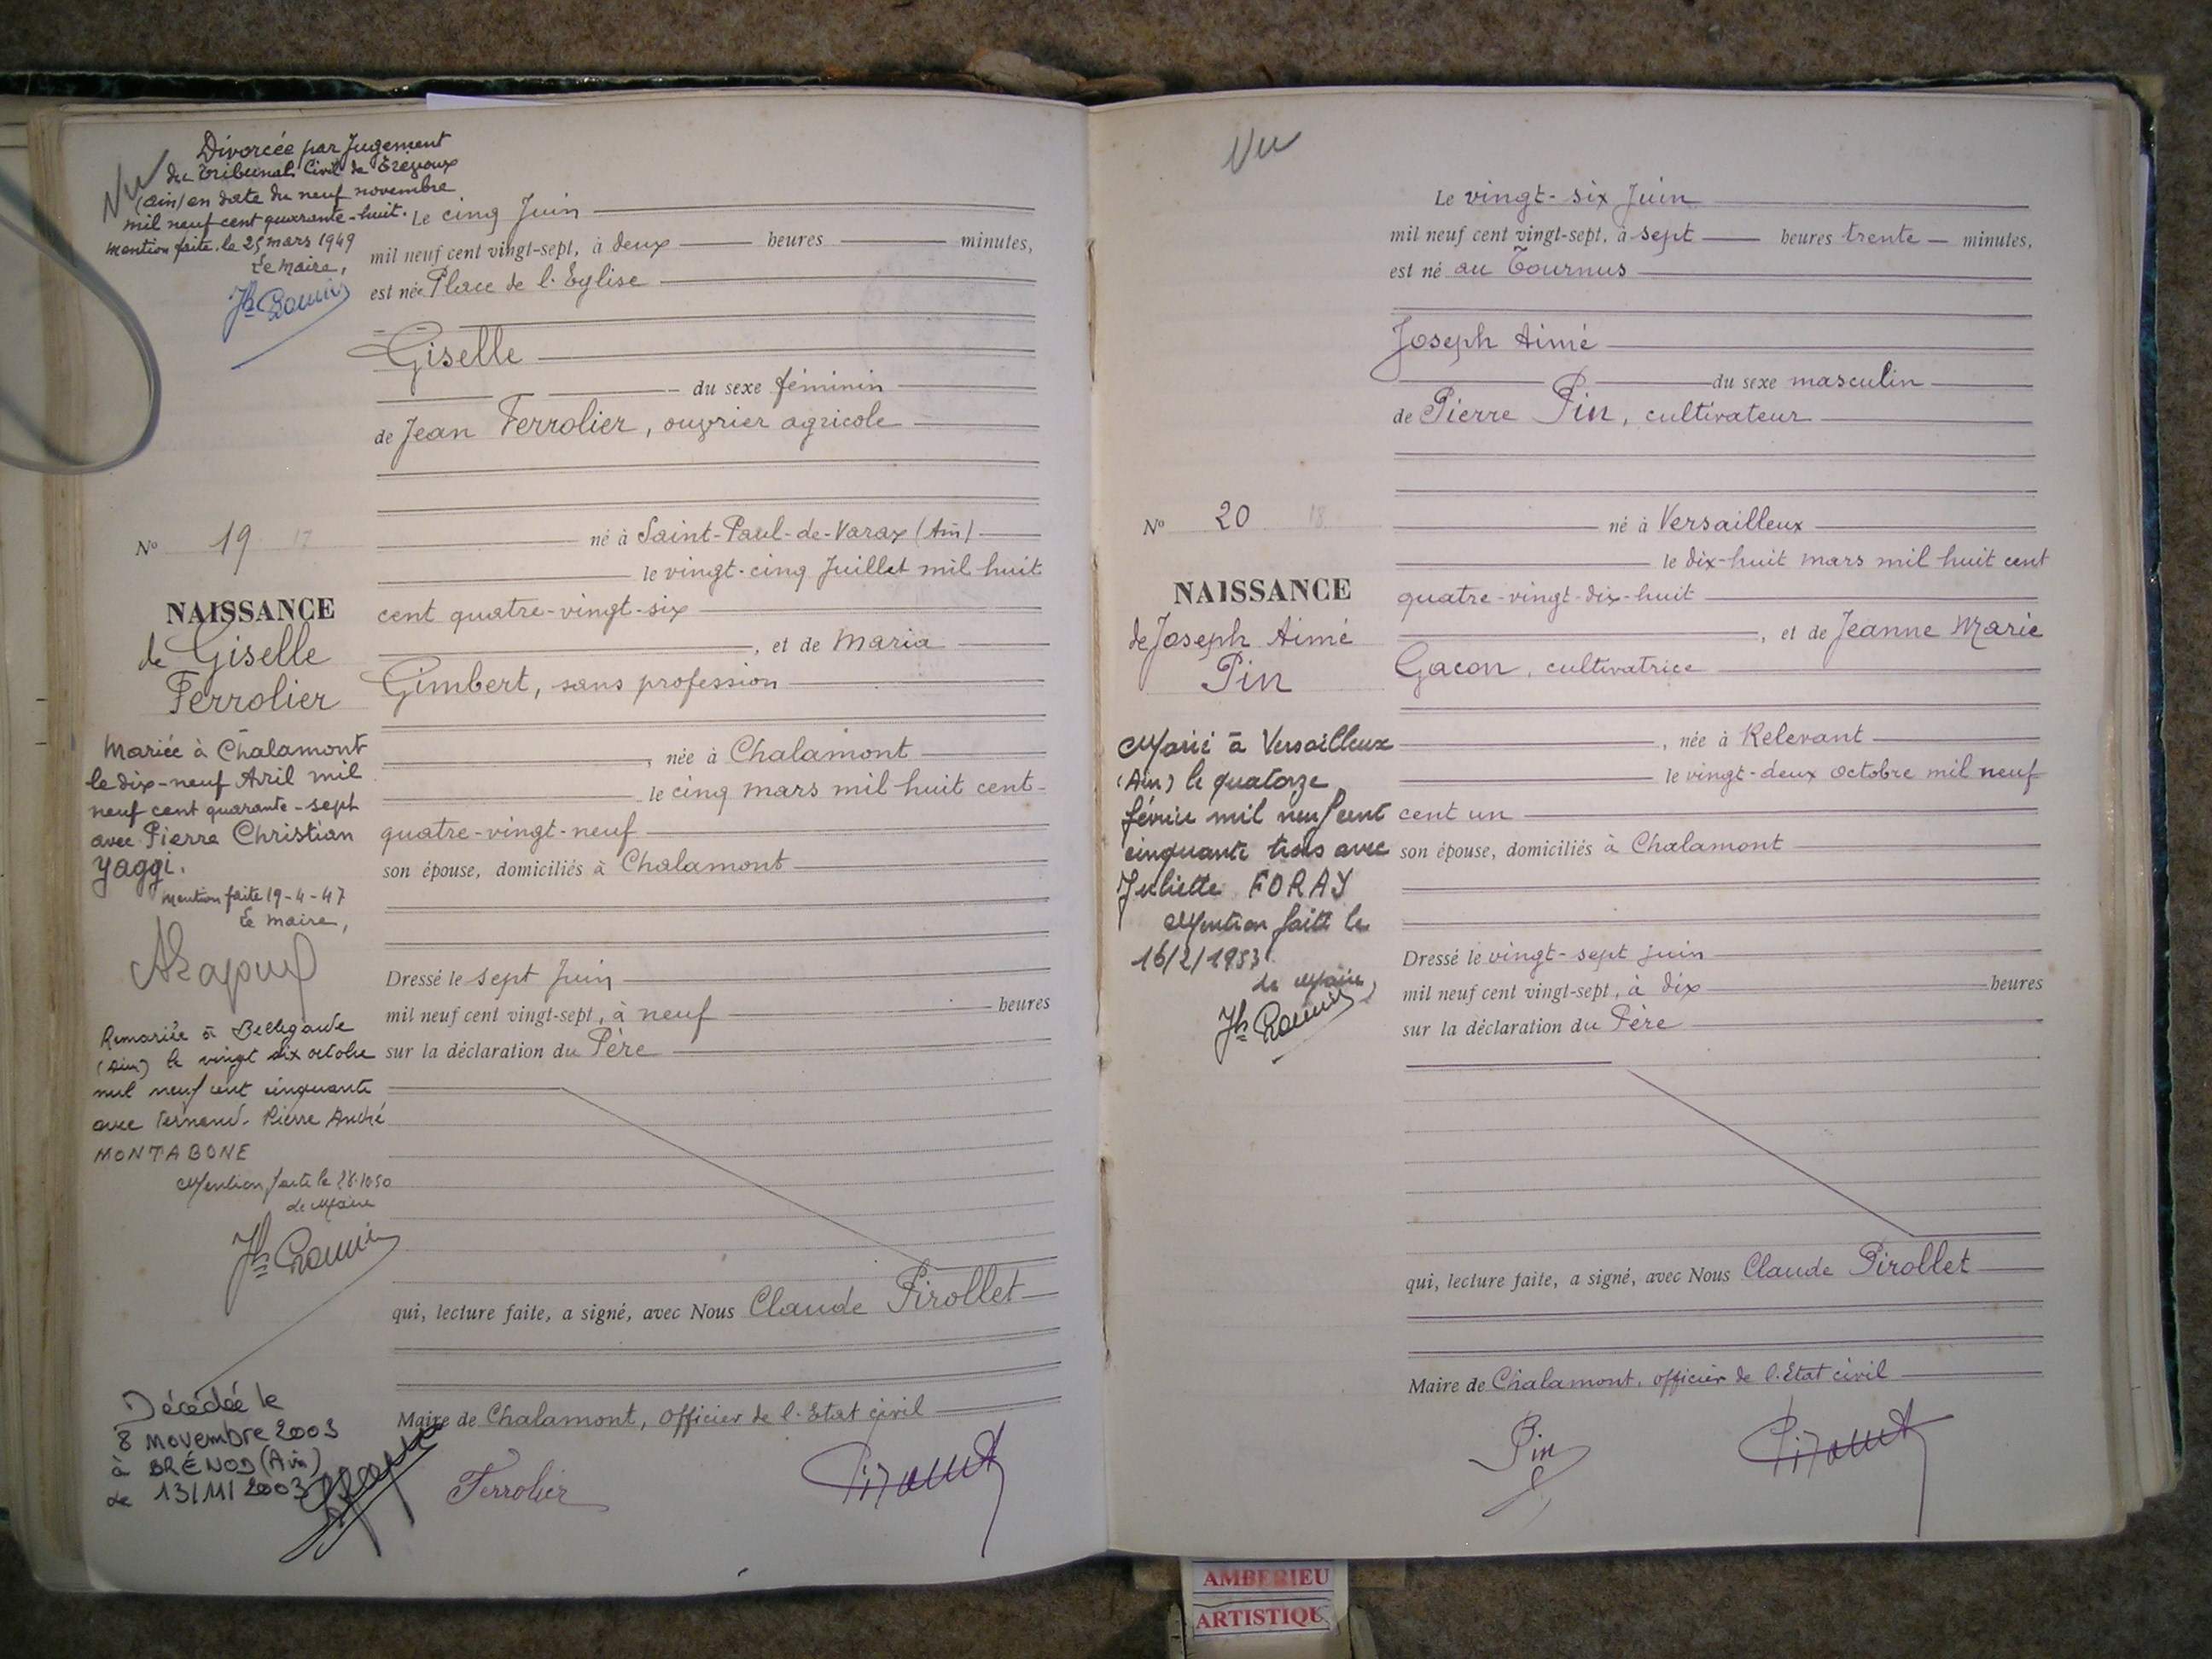 Vu
Divorcée par Jugement
du Tribunal Civil de Trévoux
(Ain) en date du neuf novembre
mil neuf cent quarante-huit.
Mention faite le 25 mars 1949
Le Maire,
Le cinq Juin
mil neuf cent vingt-sept, à deux heures minutes,
est née Place de l'Eglise
Giselle
du sexe féminin
de Jean Ferrolier, ouvrier agricole
né à Saint-Paul-de-Varax (Ain)
le vingt-cinq Juillet mil huit
cent quatre-vingt-six
, et de Maria
Gimbert, sans profession
, née à Chalamont
le cinq mars mil huit cent-
quatre-vingt-neuf
son épouse, domiciliés à Chalamont
Dressé le sept Juin
mil neuf cent vingt-sept, à neuf heures
sur la déclaration du Père
qui, lecture faite, a signé, avec Nous Claude Pirollet
Maire de Chalamont, officier de l'Etat civil
Ferrolier
N° 19 17
NAISSANCE
de Giselle
Ferrolier
Mariée à Chalamont
le dix-neuf Avril mil
neuf cent quarante-sept
avec Pierre Christian
Yaggi.
Mention faite 19-4-47
Le Maire,
Remariée à Bellegarde
(Ain) le vingt six octobre
mil neuf cent cinquante
avec Fernand. Pierre André
MONTABONE
Mention faite le 28.10.50
Le Maire
Décédée le
8 novembre 2003
à BRÉNOD (Ain)
Le 13/11/2003
Vu
Le vingt-six Juin
mil neuf cent vingt-sept, à sept heures trente minutes,
est né au Tournus
Joseph Aimé
du sexe masculin
de Pierre Pin, cultivateur
né à Versailleux
le dix-huit mars mil huit cent
quatre-vingt-dix-huit
, et de Jeanne Marie
Gacon, cultivatrice
, née à Relevant
le vingt-deux octobre mil neuf
cent un
son épouse, domiciliés à Chalamont
Dressé le vingt-sept Juin
mil neuf cent vingt-sept, à dix heures
sur la déclaration du Père
qui, lecture faite, a signé, avec Nous Claude Pirollet
Maire de Chalamont, officier de l'Etat civil
Pin
N° 20 18
NAISSANCE
de Joseph Aimé
Pin
Marié à Versailleux
(Ain) le quatorze
février mil neuf cent
cinquante trois avec
Juliette FORAY
Mention faite le
16/2/1953
Le Maire
AMBERIEU
ARTISTIQU